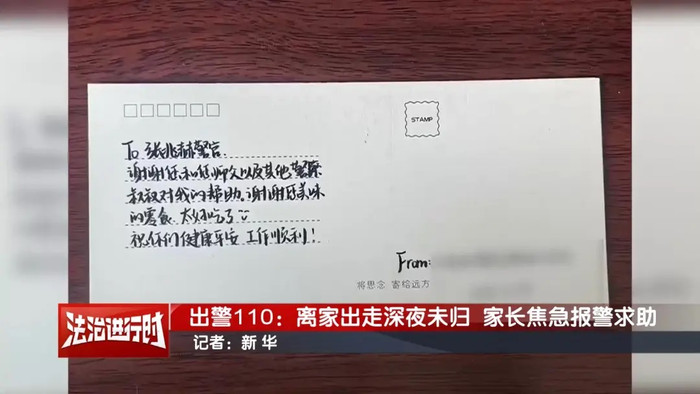 STAMP
To 张兆赫警官:
谢谢您和您师父以及其他警察
叔叔对我的帮助。谢谢您美味
的零食,太好吃了
祝你们健康平安 工作顺利!
From:
将思念 寄给远方
法治进行时
出警110:离家出走深夜未归 家长焦急报警求助
记者:新华